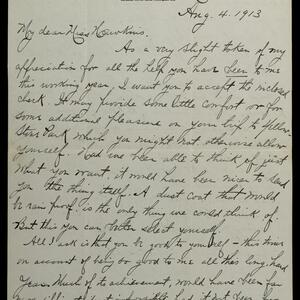 Aug. 4. 1913
My dear Miss Hawkins.
As a very slight token of my
appreciation for all the help you have been to me
this working year, I want you to accept the inclosed
check. It may provide some little comfort or for
some additional pleasure on your trip to Yellow-
stone Park which you might not otherwise allow
yourself. Had we been able to think of just
what you want, it would have been nice to send
you the thing itself. A dust coat that would
be rain proof is the only thing we could think of.
But this you can better select yourself.
All I ask is that you be good to yourself - this time
on account of being good to me all this long hard
year. Much of its achievement, would have been far
had it not been